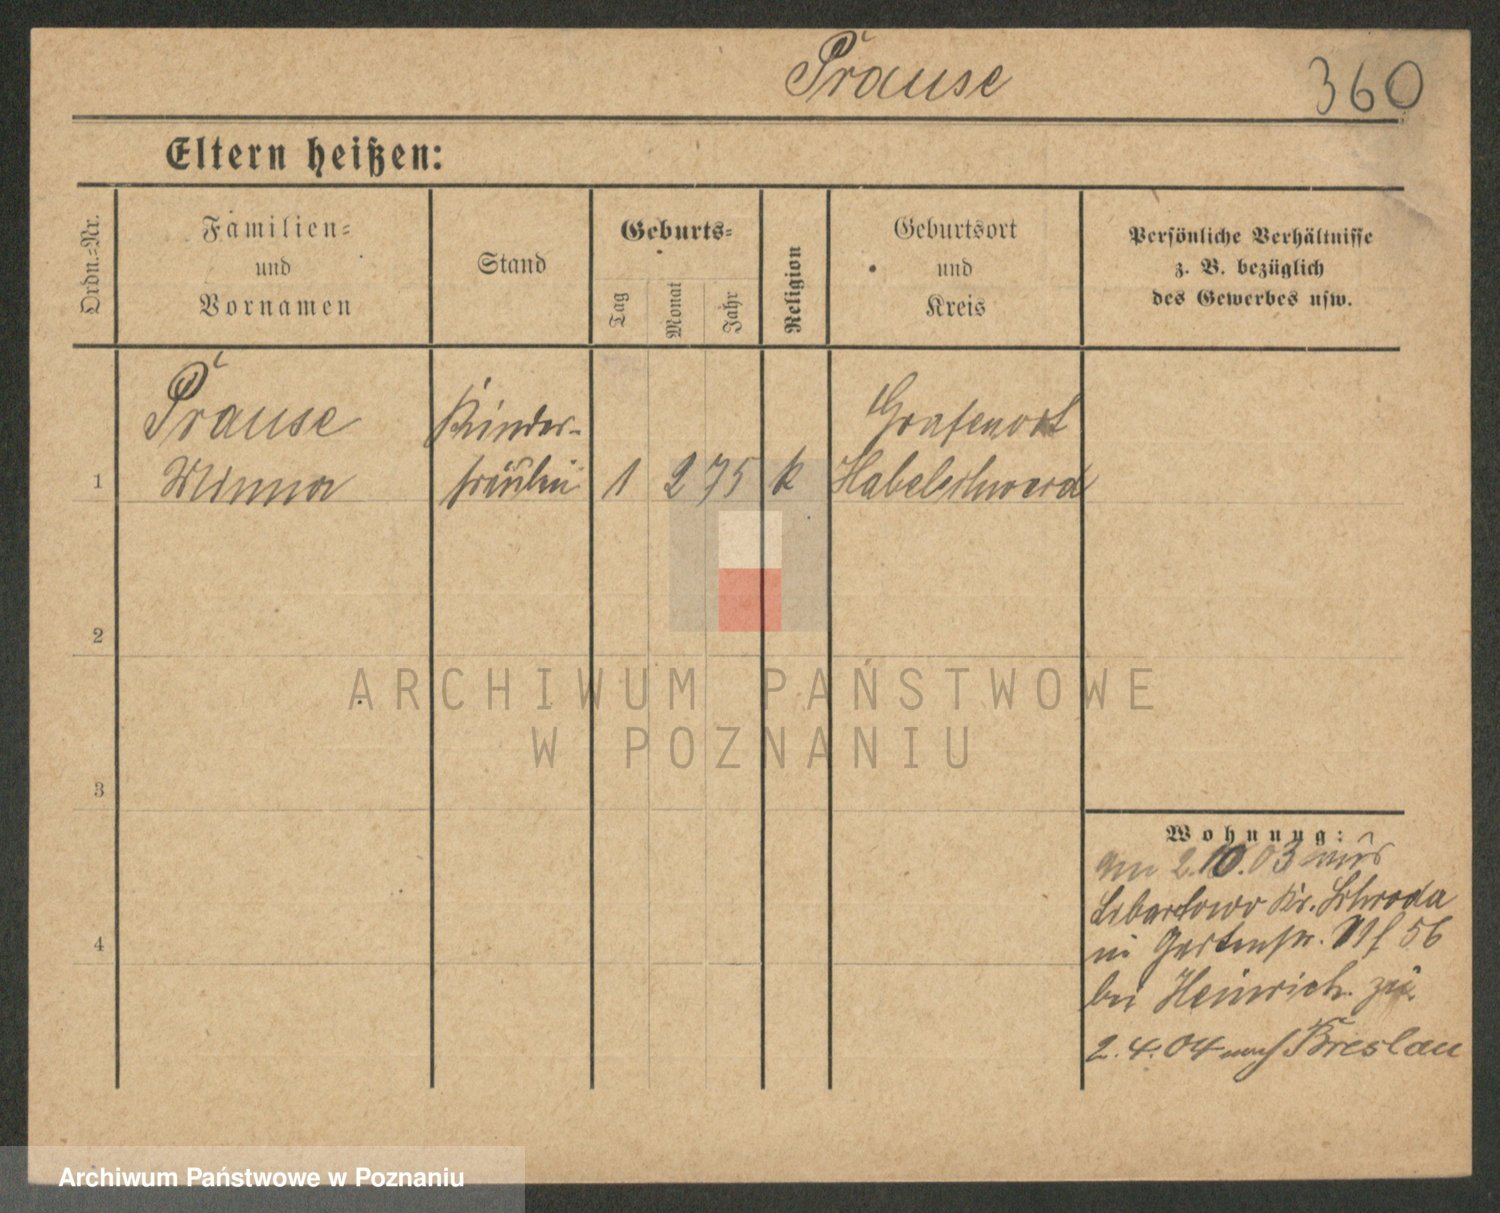 Prause 360
Eltern heißen:
Ordn.-Nr.
Familien-
und
Vornamen
Stand
Geburts-
Tag
Monat
Jahr
Religion
Geburtsort
und
Kreis
Persönliche Verhältnisse
z. B. bezüglich
des Gewerbes usw.
Prause
Kinder-
Grafenort
1 Minna fräulein 1 2 75 k Habelschwerd
2
ARCHIWUM PAŃSTWOWE
W POZNANIU
3
Wohnung:
am 2.10.03 aus
Kr. Schroda
in Gartenstr. 56
bei Heinrich zu.
4
2.4.04 nach Breslau
Archiwum Państwowe w Poznaniu